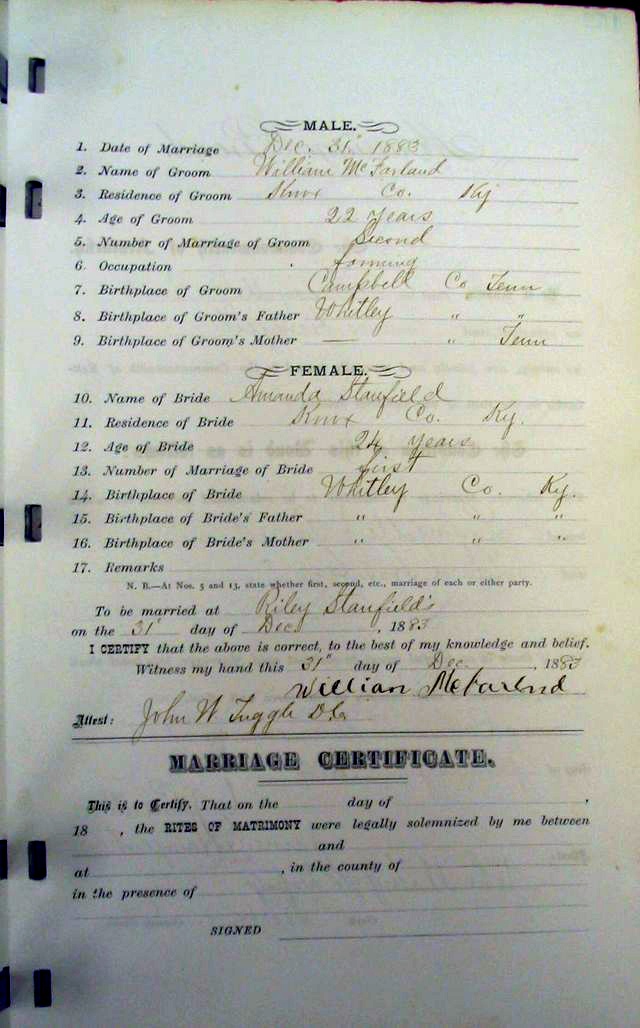 MALE.
1. Date of Marriage Dec. 31" 1883
2. Name of Groom William McFarland
3. Residence of Groom Knox Co. Ky
4. Age of Groom 22 years
5. Number of Marriage of Groom Second
6. Occupation farming
7. Birthplace of Groom Campbell Co Tenn
8. Birthplace of Groom's Father Whitley " "
9. Birthplace of Groom's Mother — " Tenn
FEMALE.
10. Name of Bride Amanda Stanfield
11. Residence of Bride Knox Co. Ky.
12. Age of Bride 24 years
13. Number of Marriage of Bride first
14. Birthplace of Bride Whitley Co. Ky.
15. Birthplace of Bride's Father " " "
16. Birthplace of Bride's Mother " " "
17. Remarks
N. B.—At Nos. 5 and 13, state whether first, second, etc., marriage of each or either party.
To be married at Riley Stanfield's
on the 31" day of Dec. , 1883
I CERTIFY that the above is correct, to the best of my knowledge and belief.
Witness my hand this 31" day of Dec. , 1883
William McFarlnd
Attest: John W Tuggle D.C.
MARRIAGE CERTIFICATE.
This is to Certify, That on the day of ,
18 , the RITES OF MATRIMONY were legally solemnized by me between
and
at , in the county of
in the presence of
SIGNED